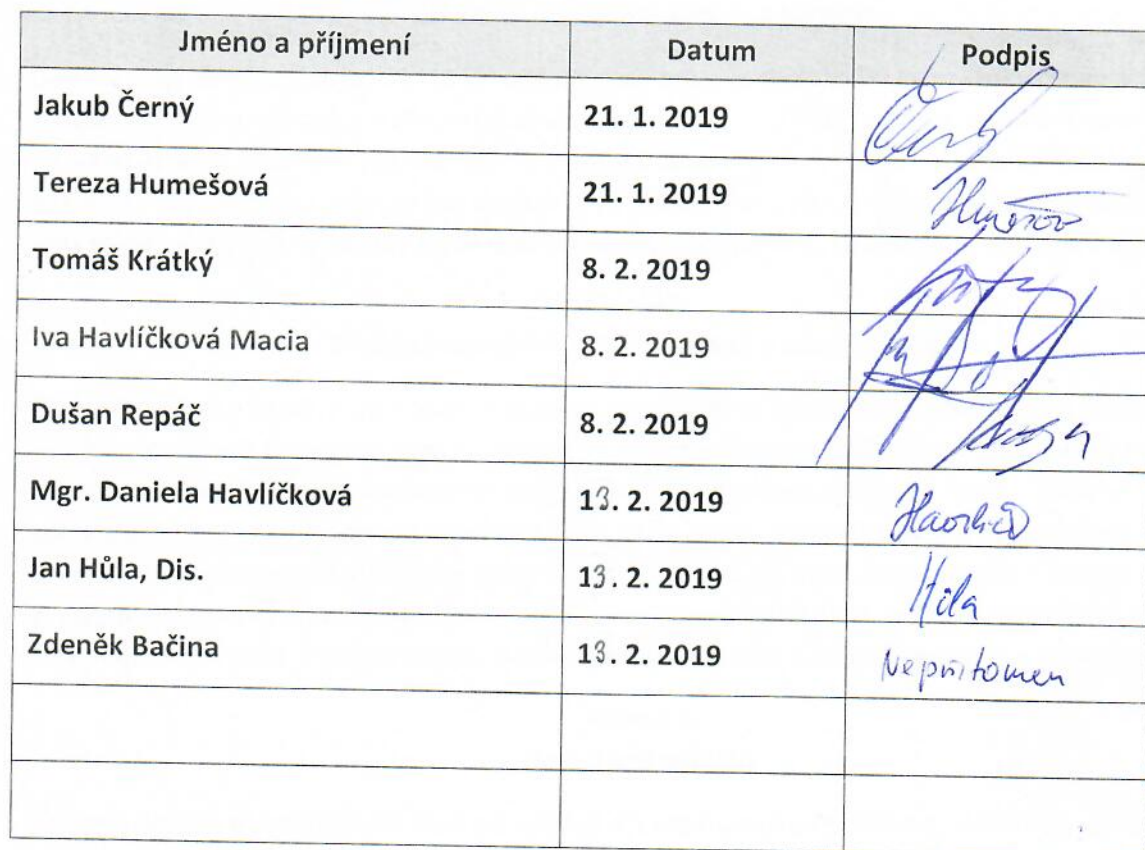 Jméno a příjmení Datum Podpis
Jakub Černý 21. 1. 2019
Tereza Humešová 21. 1. 2019
Tomáš Krátký 8. 2. 2019
Iva Havlíčková Macia 8. 2. 2019
Dušan Repáč 8. 2. 2019
Mgr. Daniela Havlíčková 13. 2. 2019
Jan Hůla, Dis. 13. 2. 2019 Hůla
Zdeněk Bačina 13. 2. 2019 Nepřítomen